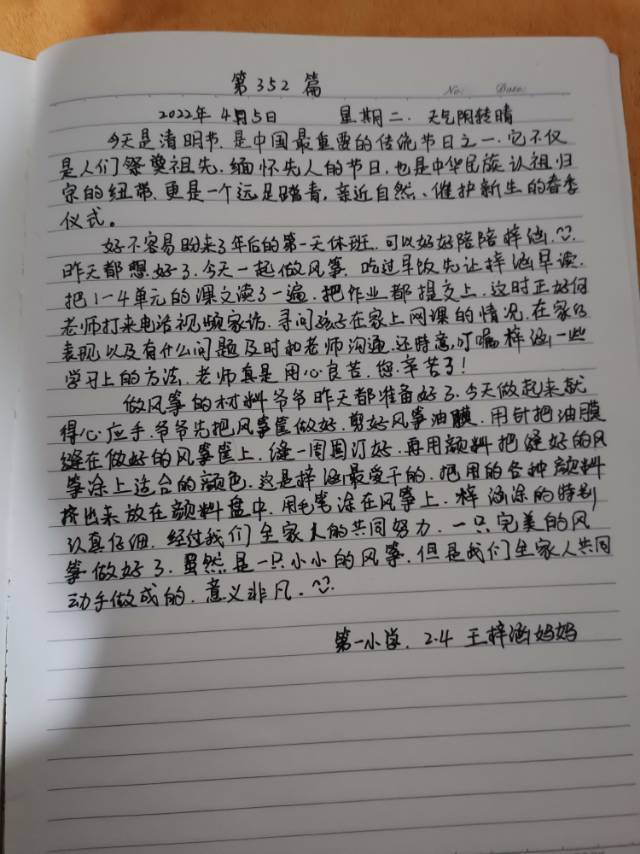 第352篇
No: Date:
2022年4月5日 星期二. 天气阴转晴
今天是清明节.是中国最重要的传统节日之一.它不仅
是人们祭奠祖先.缅怀先人的节日,也是中华民族认祖归
宗的纽带.更是一个远足踏青,亲近自然、催护新生的春季
仪式。
好不容易盼来了年后的第一天休班.可以好好陪陪梓涵.
昨天都想好了.今天一起做风筝.吃过早饭先让梓涵早读.
把1-4单元的课文读了一遍.把作业都提交上.这时正好何
老师打来电话视频家访.寻问孩子在家上网课的情况.在家的
表现以及有什么问题及时和老师沟通.还特意叮嘱梓涵一些
学习上的方法.老师真是用心良苦.您辛苦了!
做风筝的材料爷爷昨天都准备好了.今天做起来就
得心应手.爷爷先把风筝筐做好.剪好风筝油膜.用针把油膜
缝在做好的风筝筐上.缝一周圈订好.再用颜料把缝好的风
筝涂上适合的颜色.这是梓涵最爱干的.把用的各种颜料
挤出来放在颜料盘中.用毛笔涂在风筝上.梓涵涂的特别
认真仔细.经过我们全家人的共同努力.一只完美的风
筝做好了.虽然是一只小小的风筝.但是我们全家人共同
动手做成的.意义非凡.
第一小学. 2.4 王梓涵妈妈